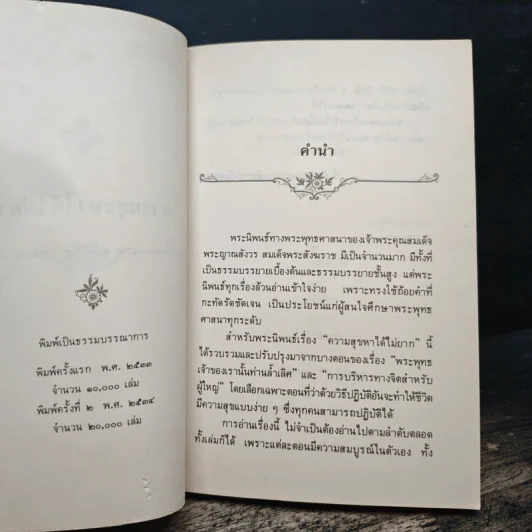 พิมพ์เป็นธรรมบรรณาการ
พิมพ์ครั้งแรก พ.ศ. ๒๕๓๓
จำนวน ๑๐,๐๐๐ เล่ม
พิมพ์ครั้งที่ ๒ พ.ศ. ๒๕๓๔
จำนวน ๒๐,๐๐๐ เล่ม
คำนำ
พระนิพนธ์ทางพระพุทธศาสนาของเจ้าพระคุณสมเด็จ
พระญาณสังวร สมเด็จพระสังฆราช มีเป็นจำนวนมาก มีทั้งที่
เป็นธรรมบรรยายเบื้องต้นและธรรมบรรยายชั้นสูง แต่พระ
นิพนธ์ทุกเรื่องล้วนอ่านเข้าใจง่าย เพราะทรงใช้ถ้อยคำที่
กะทัดรัดชัดเจน เป็นประโยชน์แก่ผู้สนใจศึกษาพระพุทธ
ศาสนาทุกระดับ
สำหรับพระนิพนธ์เรื่อง “ความสุขหาได้ไม่ยาก” นี้
ได้รวบรวมและปรับปรุงมาจากบางตอนของเรื่อง “พระพุทธ
เจ้าของเรานั้นท่านล้ำเลิศ” และ “การบริหารทางจิตสำหรับ
ผู้ใหญ่” โดยเลือกเฉพาะตอนที่ว่าด้วยวิธีปฏิบัติอันจะทำให้ชีวิต
มีความสุขแบบง่าย ๆ ซึ่งทุกคนสามารถปฏิบัติได้
การอ่านเรื่องนี้ ไม่จำเป็นต้องอ่านไปตามลำดับตลอด
ทั้งเล่มก็ได้ เพราะแต่ละตอนมีความสมบูรณ์ในตัวเอง ทั้ง